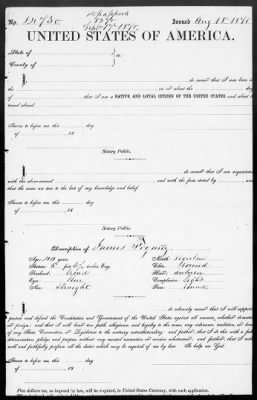 No. Issued Aug 18 1870
UNITED STATES OF AMERICA.
State of
County of
I, do swear that I was born in
on or about the day
of that I am a NATIVE AND LOYAL CITIZEN OF THE UNITED STATES, and about to
travel abroad.
Sworn to before me, this day
of 18
Notary Public.
I, do swear that I am acquainted
with the above-named and with the facts stated by
and that the same are true to the best of my knowledge and belief.
Sworn to before me, this day
of 18
Notary Public.
Description of James
Age: years Mouth:
Stature: 5 feet inches, Eng. Chin: Round
Forehead: Hair: auburn
Eyes: Blue Complexion: Light
Nose: Straight Face:
I, do solemnly swear that I will support,
protect, and defend the Constitution and Government of the United States against all enemies, whether domestic
or foreign; and that I will bear true faith, allegiance, and loyalty to the same, any ordinance, resolution, or law
of any State Convention or Legislature to the contrary notwithstanding; and further, that I do this with a full
determination, pledge, and purpose, without any mental reservation or evasion whatsoever; and further, that I will
well and faithfully perform all the duties which may be required of me by law. So help me God.
Sworn to before me, this day
of 18
Notary Public.
Five dollars tax, as imposed by law, will be required, in United States Currency, with each application.